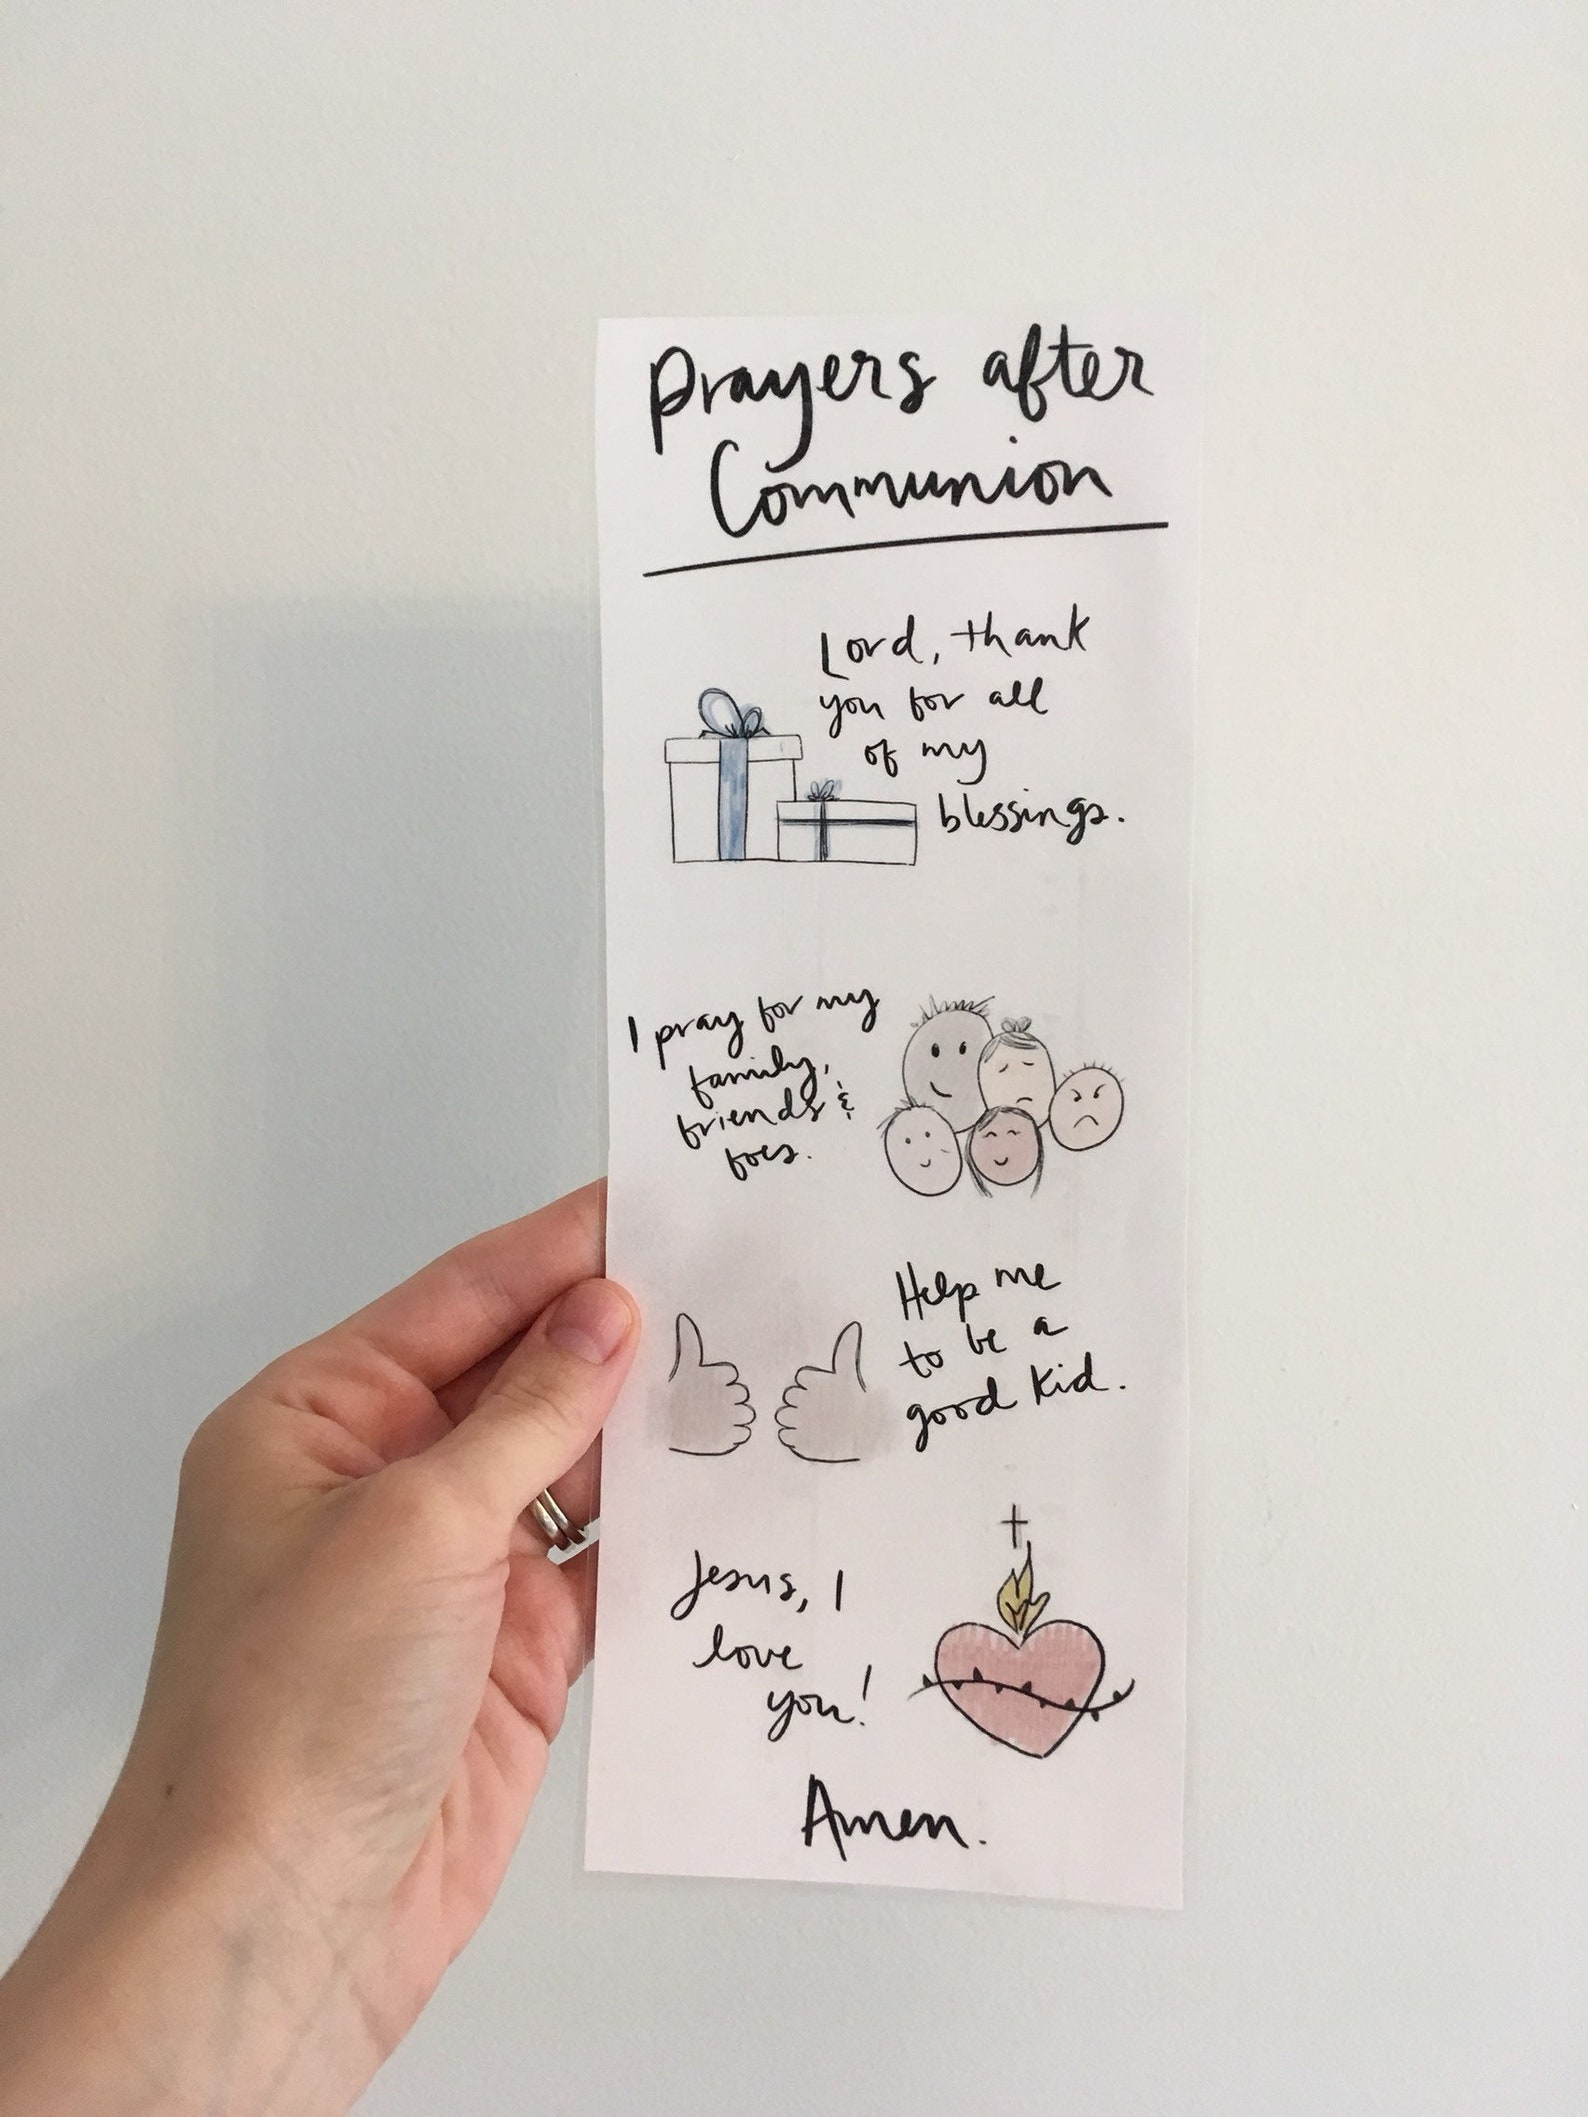 Prayers after
Communion
Lord, thank
you for all
of my
blessings.
I pray for my
family,
friends &
foes.
Help me
to be a
good kid.
Jesus, I
love
you!
Amen.